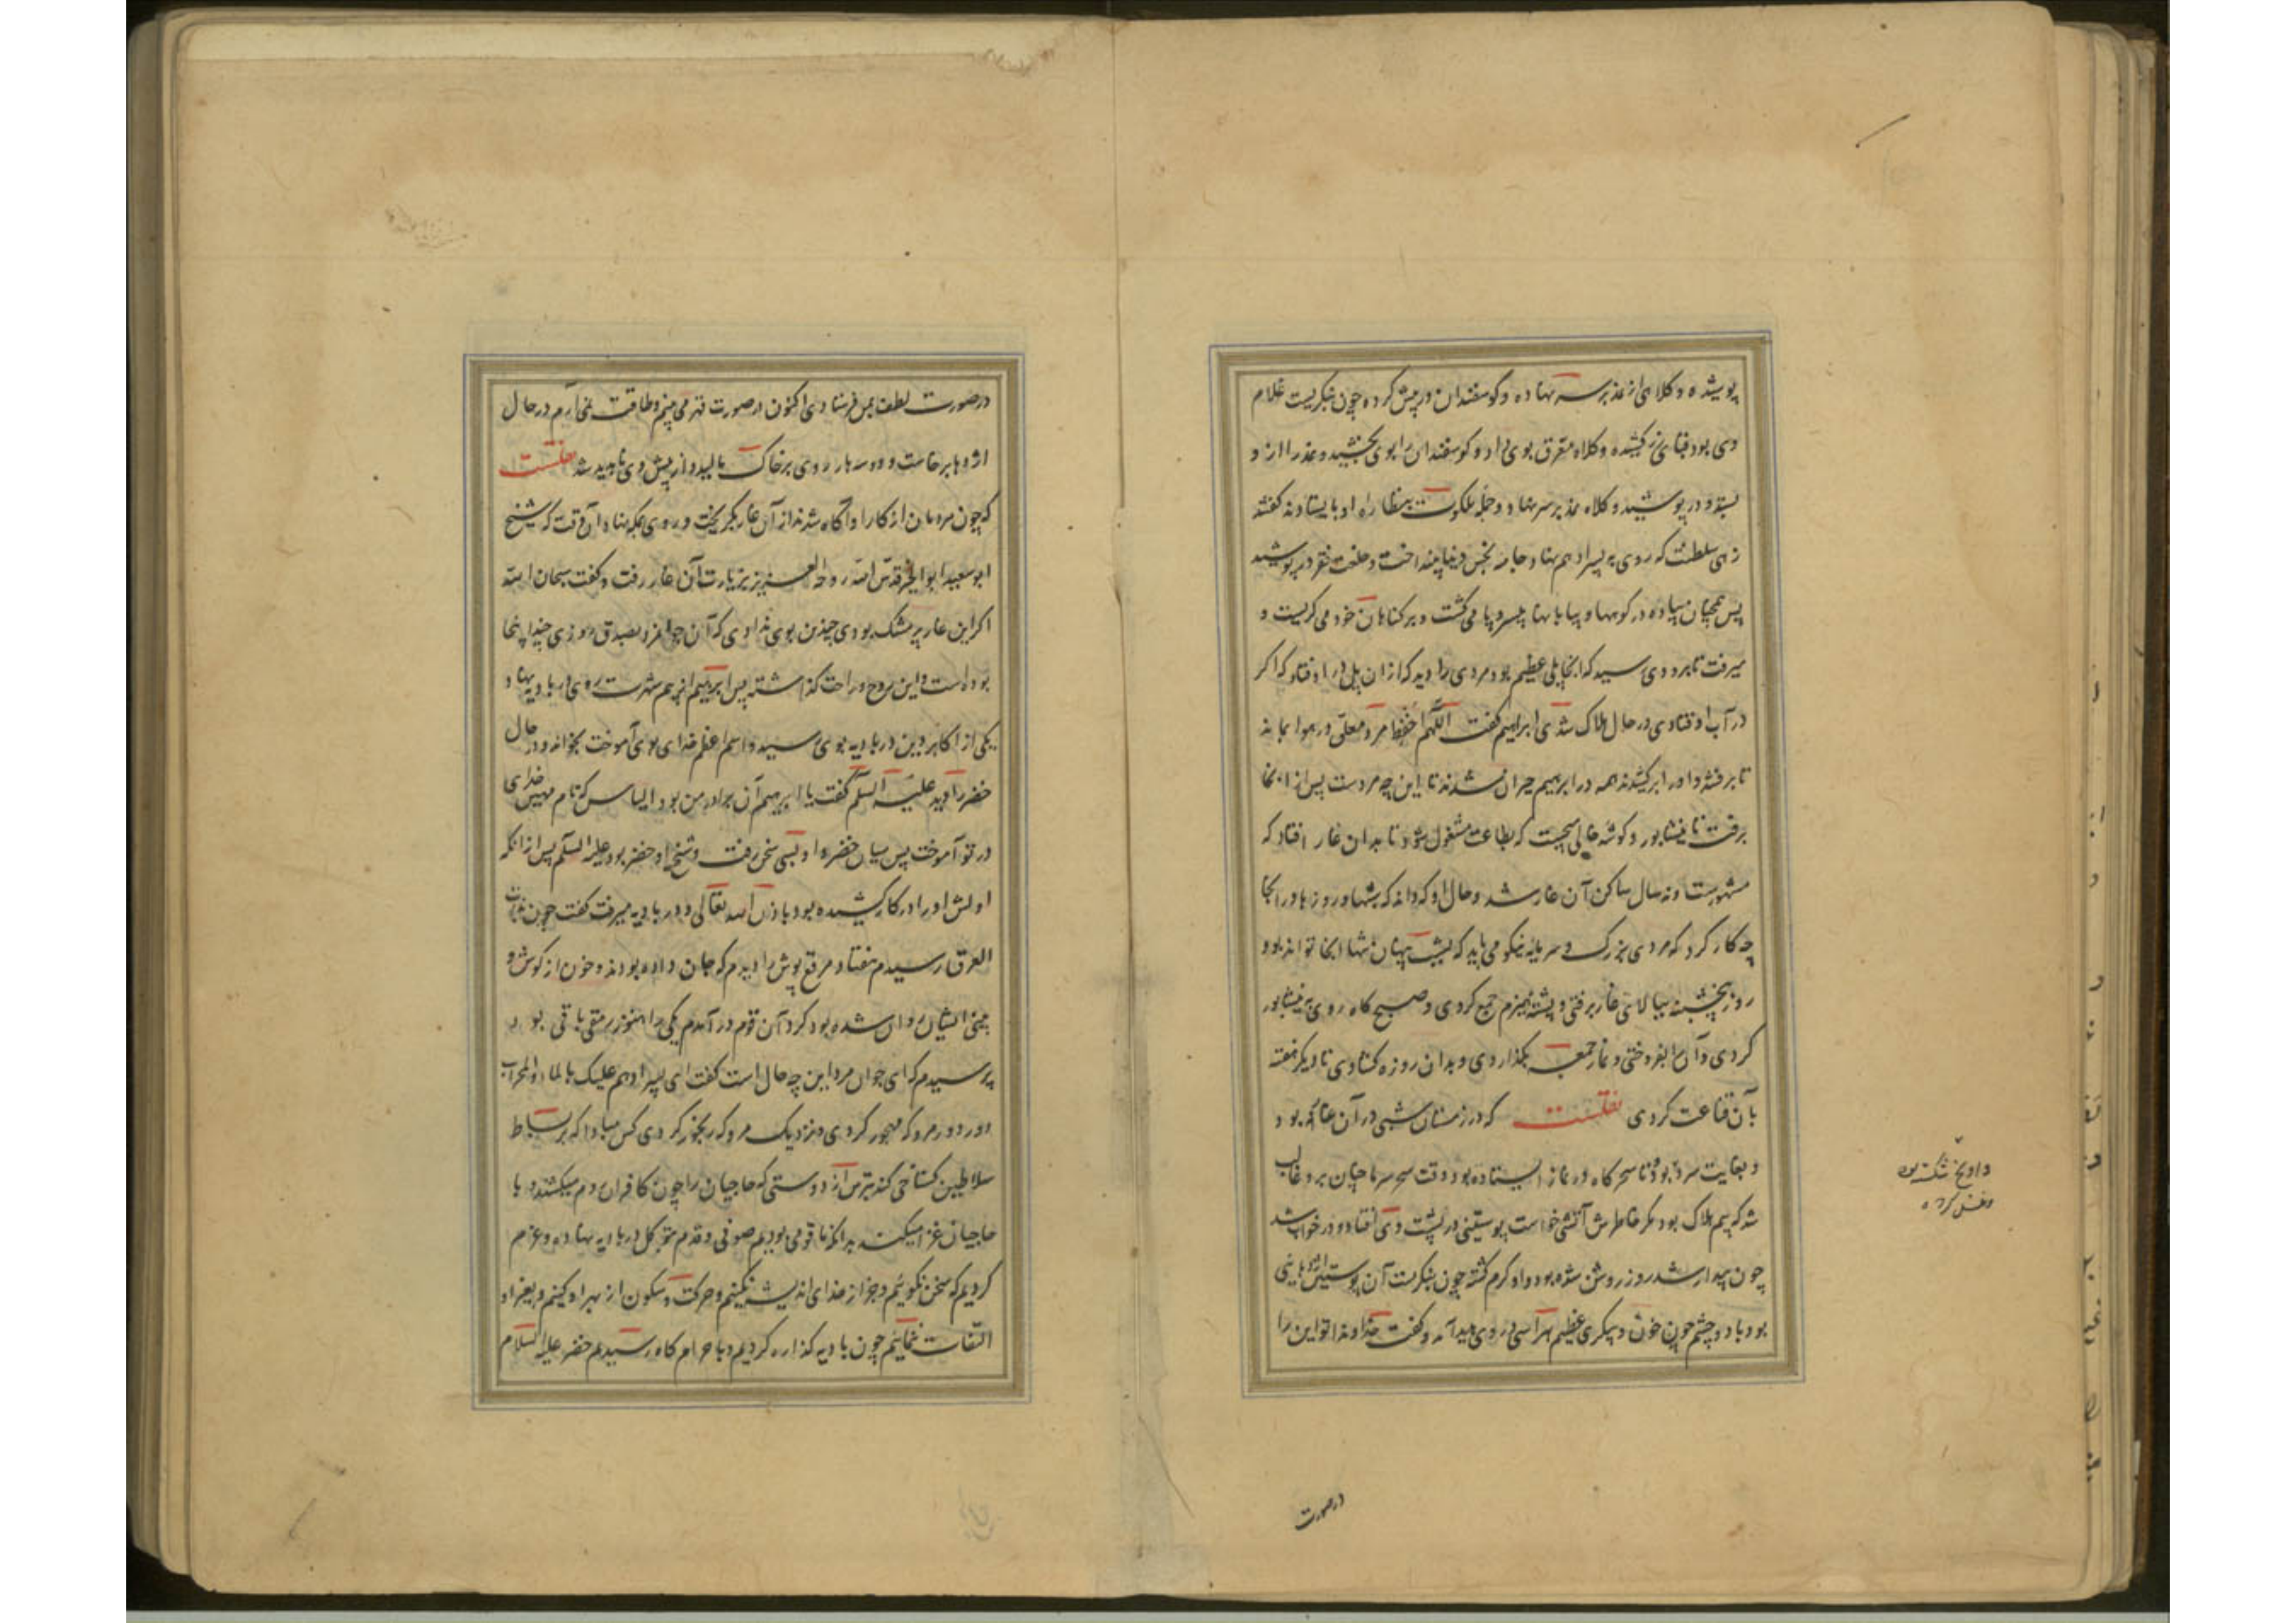 پوشیده و کلاهی از نمد بر سر نهاده و گوسفندان در پیش کرده چون بنگریست غلام
وی بود قبای زرکشیده و کلاه مغرق بوی داد و گوسفندان را بوی بخشید و نمد را از و
بستد و در پوشید و کلاه نمد بر سر نهاد و جمله ملکوت بنظاره او بایستادند گفتند
زهی سلطنت که روی به پسر ادهم نهاد جامه نجس دنیا بینداخت و خلعت فقر در پوشید
پس همچنان پیاده در کوهها و بیابانها بی سر و پا می گشت و بر گناهان خود می گریست و
میرفت تا بمرو رسید که آنجا پلی عظیم بود مردی را دید که از ان پل در افتاد که اگر
در آب افتادی در حال هلاک شدی ابراهیم گفت اللهم احفظ مرد معلق در هوا بماند
تا برفتند و او را برکشیدند همه در ابراهیم حیران شدند تا این چه مردست پس از انجا
برفت تا نیشابور و گوشه خالی میجست که بطاعت مشغول شود تا بدان غار افتاد که
مشهورست و نه سال ساکن آن غار شد و حال او که داند که شبها و روزها در انجا
چه کار کرد که مردی بزرگ و سرمایه نیکو می باید که بشب پنهان تنها انجا تواند بود
روز پنجشنبه ببالای غار برفتی و پشته هیزم جمع کردی و صبح گاه روی به نیشابور
کردی و آن را بفروختی و نماز جمعه بگذاردی و بدان روزه گشادی تا دیگر هفته
بآن قناعت کردی نقلست که در زمستان شبی در آن غار بود
و بغایت سرد بود تا سحر گاه در نماز ایستاده بود وقت سحر سرما چنان برو غالب
شد که بیم هلاک بود مگر خاطرش آتشی خواست پوستینی در پشت وی افتاد و در خواب شد
چون بیدار شد روز روشن شده بود و او گرم گشته چون بنگریست آن پوستین اژدهایی
بود با دو چشم چون خون و پیکری عظیم هراسی در وی پدید آمد و گفت خداوندا تو این را
در صورت
در صورت لطف بمن فرستادی اکنون در صورت قهر می بینم و طاقت نمی آرم در حال
اژدها برخاست و دو سه بار روی بر خاک مالید و از پیش وی ناپدید شد نقلست
که چون مردمان از کار او آگاه شدند از آن غار بگریخت و روی بمکه نهاد آن وقت که شیخ
ابو سعید ابو الخیر قدس الله روحه العزیز بزیارت آن غار رفت و گفت سبحان الله
اگر این غار پر مشک بودی چندین بوی ندادی که آن جوانمرد بصدق روزی چند اینجا
بوده است و این روح و راحت گذاشته پس ابراهیم از بیم شهرت روی در بادیه نهاد و
یکی از اکابر دین در بادیه بوی رسید و اسم اعظم خدای بوی آموخت بخواند و در حال
خضر را دید علیه السلم گفت یا ابراهیم آن برادر من بود الیاس که نام مهین خدای
در تو آموخت پس میان خضر و او بسی سخن رفت و شیخ او خضر بود علیه السلم پس از انکه
اولش او را در کار کشیده بود باذن الله تعالی و در بادیه میرفت گفت چون بذات
العرق رسیدم هفتاد مرقع پوش را دیدم که جان داده بودند و خون از گوش و
بینی ایشان روان شده بود گرد آن قوم در آمدم یکی را هنوز رمقی باقی بود
پرسیدم که ای جوان مرد این چه حال است گفت ای پسر ادهم علیک بالماء والمحراب
دور دور مرو که مهجور گردی و نزدیک مرو که رنجور گردی کس مبادا که بر بساط
سلاطین گستاخی کند بترس از دوستی که حاجیان را چون کافران روم میکشد و با
حاجیان غزا میکند بدانکه ما قومی بودیم صوفی و قدم بتوکل در بادیه نهاده و عزم
کردیم که سخن نگوئیم و جز از خدای اندیشه نکنیم و حرکت و سکون از بهر او کنیم و بغیر او
التفات ننمائیم چون بادیه گذاره کردیم و باحرام گاه رسیدیم خضر علیه السلام